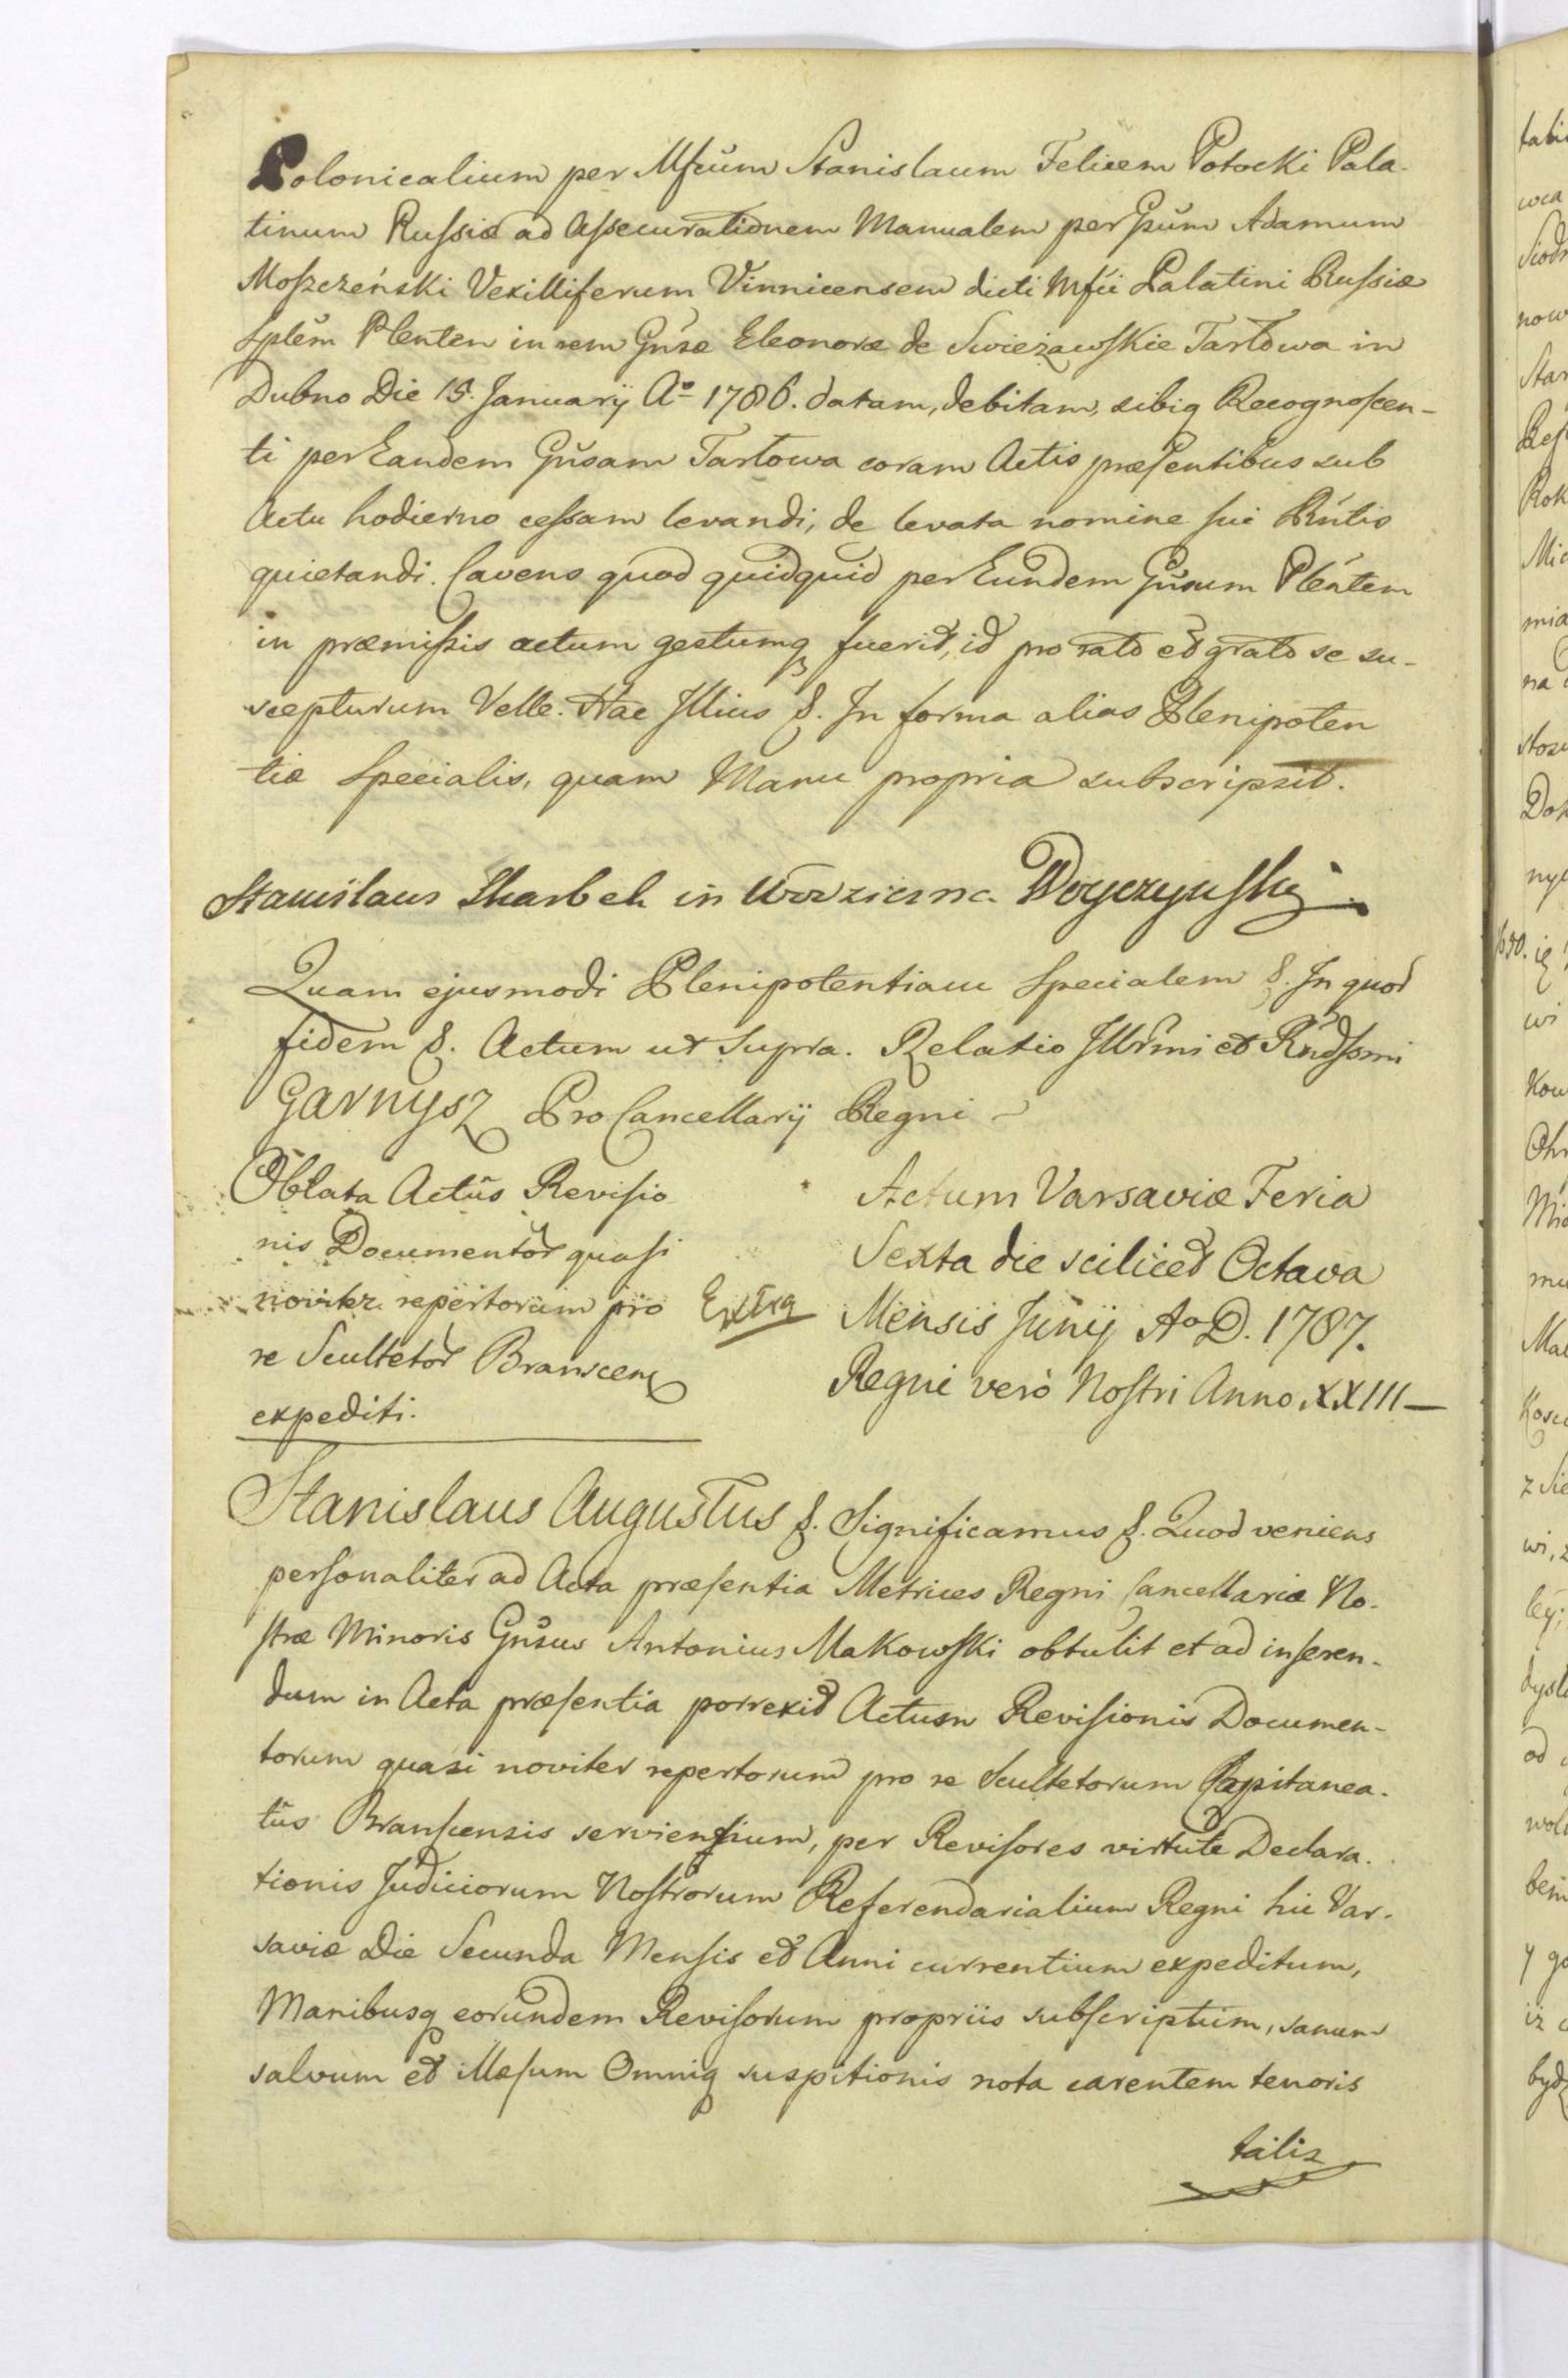 Polonicalium per Mfcum Stanislaum Felicem Potocki Pala-
tinum Russiæ ad Assecurationem Manualem per Gsum Adamum
Moszczeński Vexilliferum Vinnicensem dicti Mfci Palatini Russiæ
Splem Plenten in rem Gnsæ Eleonoræ de Swieżawskie Tarłowa in
Dubno Die 15. Januarij Ao 1786. datam, debitam, sibiq Recognoscen-
ti per Eandem Gnsam Tarłowa coram Actis præsentibus sub
Actu hodierno cessam levandi, de levata nomine sui Rntis
quietandi. Cavens quod quidquid per Eundem Gnsum Plentem
in præmissis actum gestumq fuerit, id pro rato et grato se su-
scepturum Velle. Hac Illius &. In forma alias Plenipoten
tiæ Specialis, quam Manu propria subscripsit.
Stanislaus Skarbek in Woyczyński
Quam ejusmodi Plenipotentiam Specialem &. In quod
fidem &. Actum ut Supra. Relatio Illrmi et Rndssmi
Garnysz ProCancellarij Regni
Oblata Actûs Revisio
nis Documentor quasi
noviter repertorum pro
re Scultetor Branscens
expediti.
Extra
Actum Varsaviæ Feria
Sexta die scilicet Octava
Mensis Junij Ao D. 1787.
Regni verò Nostri Anno XXIII
Stanislaus Augustus &. Significamus &. Quod veniens
personaliter ad Acta præsentia Metrices Regni Cancellariæ No-
stræ Minoris Gnsus Antonius Makowski obtulit et ad inseren-
dum in Acta præsentia porrexit Actum Revisionis Documen-
torum quasi noviter repertorum pro re Scultetorum Capitanea-
tûs Branscensis servientium, per Revisores virtute Declara-
tionis Judiciorum Nostrorum Referendarialium Regni hic Var-
saviæ Die Secunda Mensis et Anni currentium expeditum,
Manibusq eorundem Revisorum propriis subscriptum, sanum
salvum et illæsum Omniq suspitionis nota carentem tenoris
talis